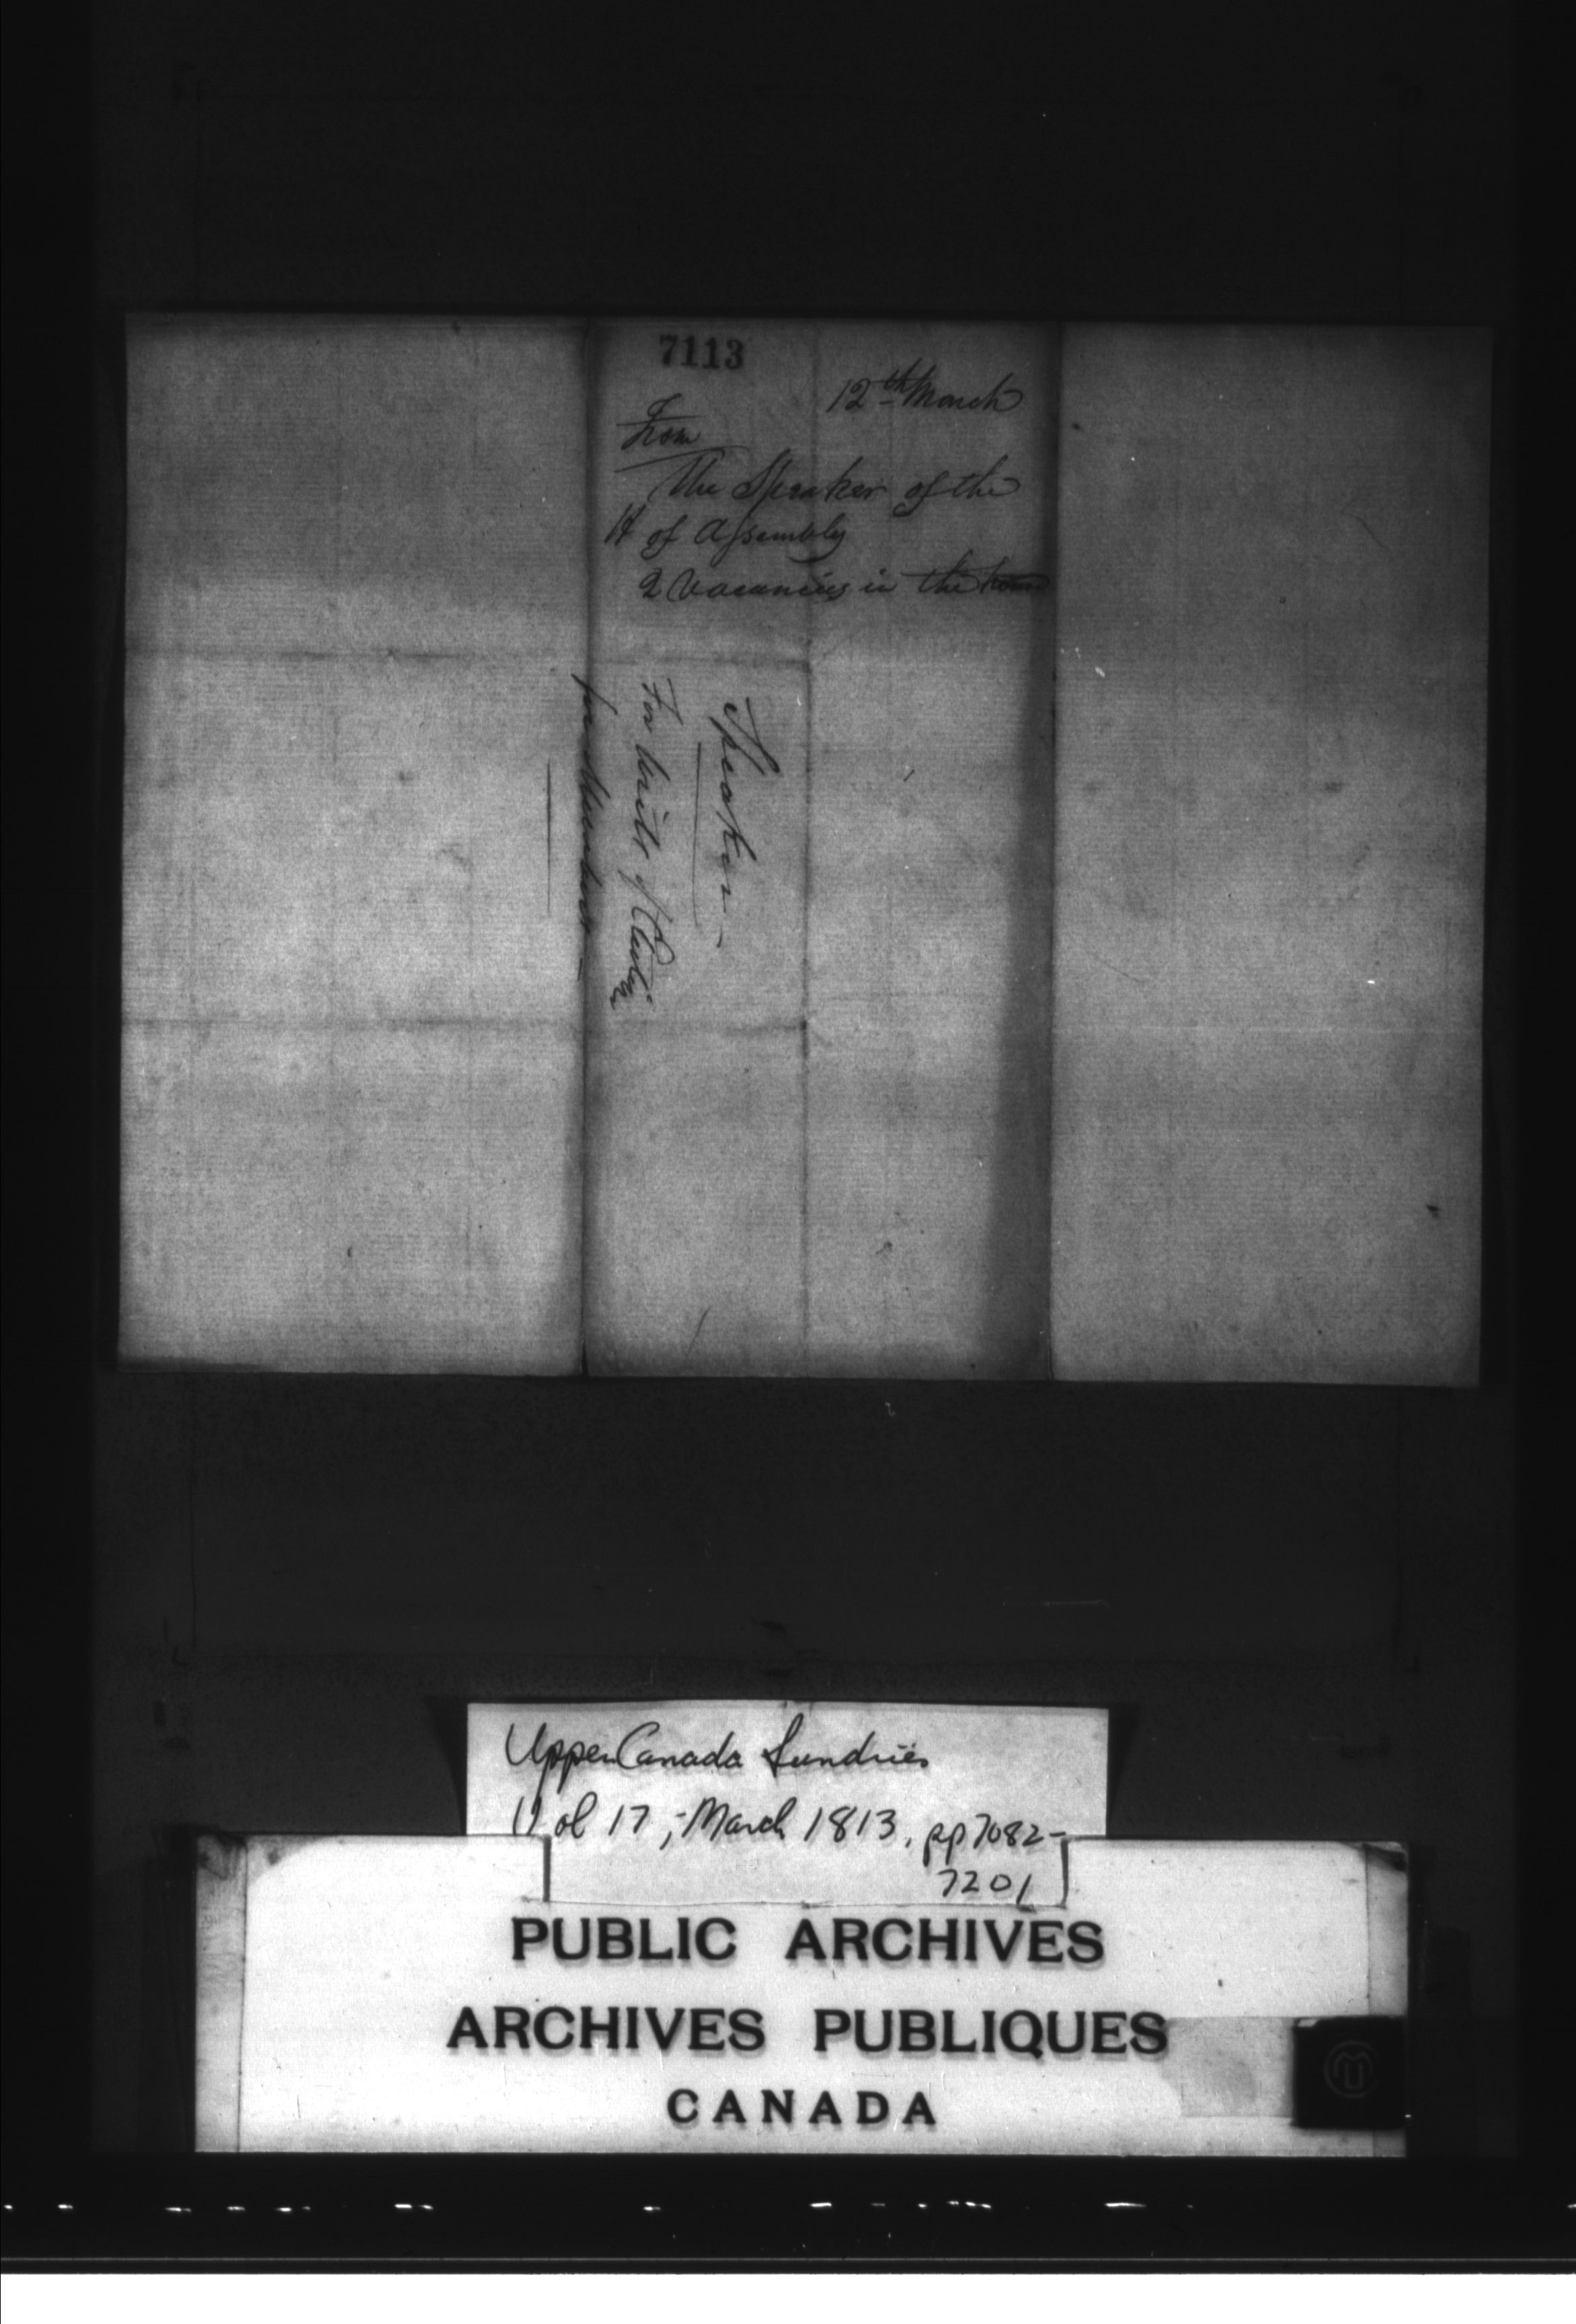 7113
12th March
From
The Speaker of the
H of Assembly
2 Vacancies in the house
Speaker —
For Writs of Election
for Members —
Upper Canada Sundries
Vol 17, - March 1813, pp 7082-
7201
PUBLIC ARCHIVES
ARCHIVES PUBLIQUES
CANADA